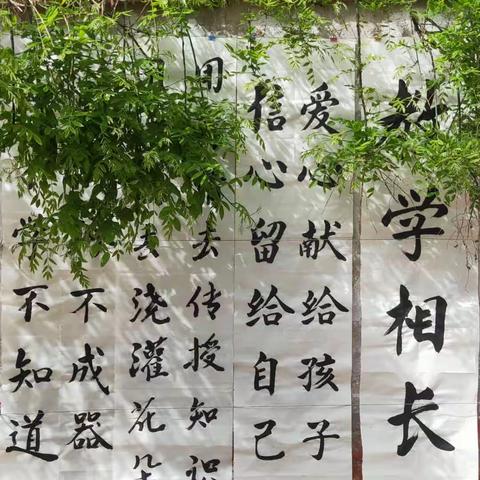 教学相长
爱心献给孩子
信心留给自己
用去传授知识
去浇灌花朵
不成器
学不知道